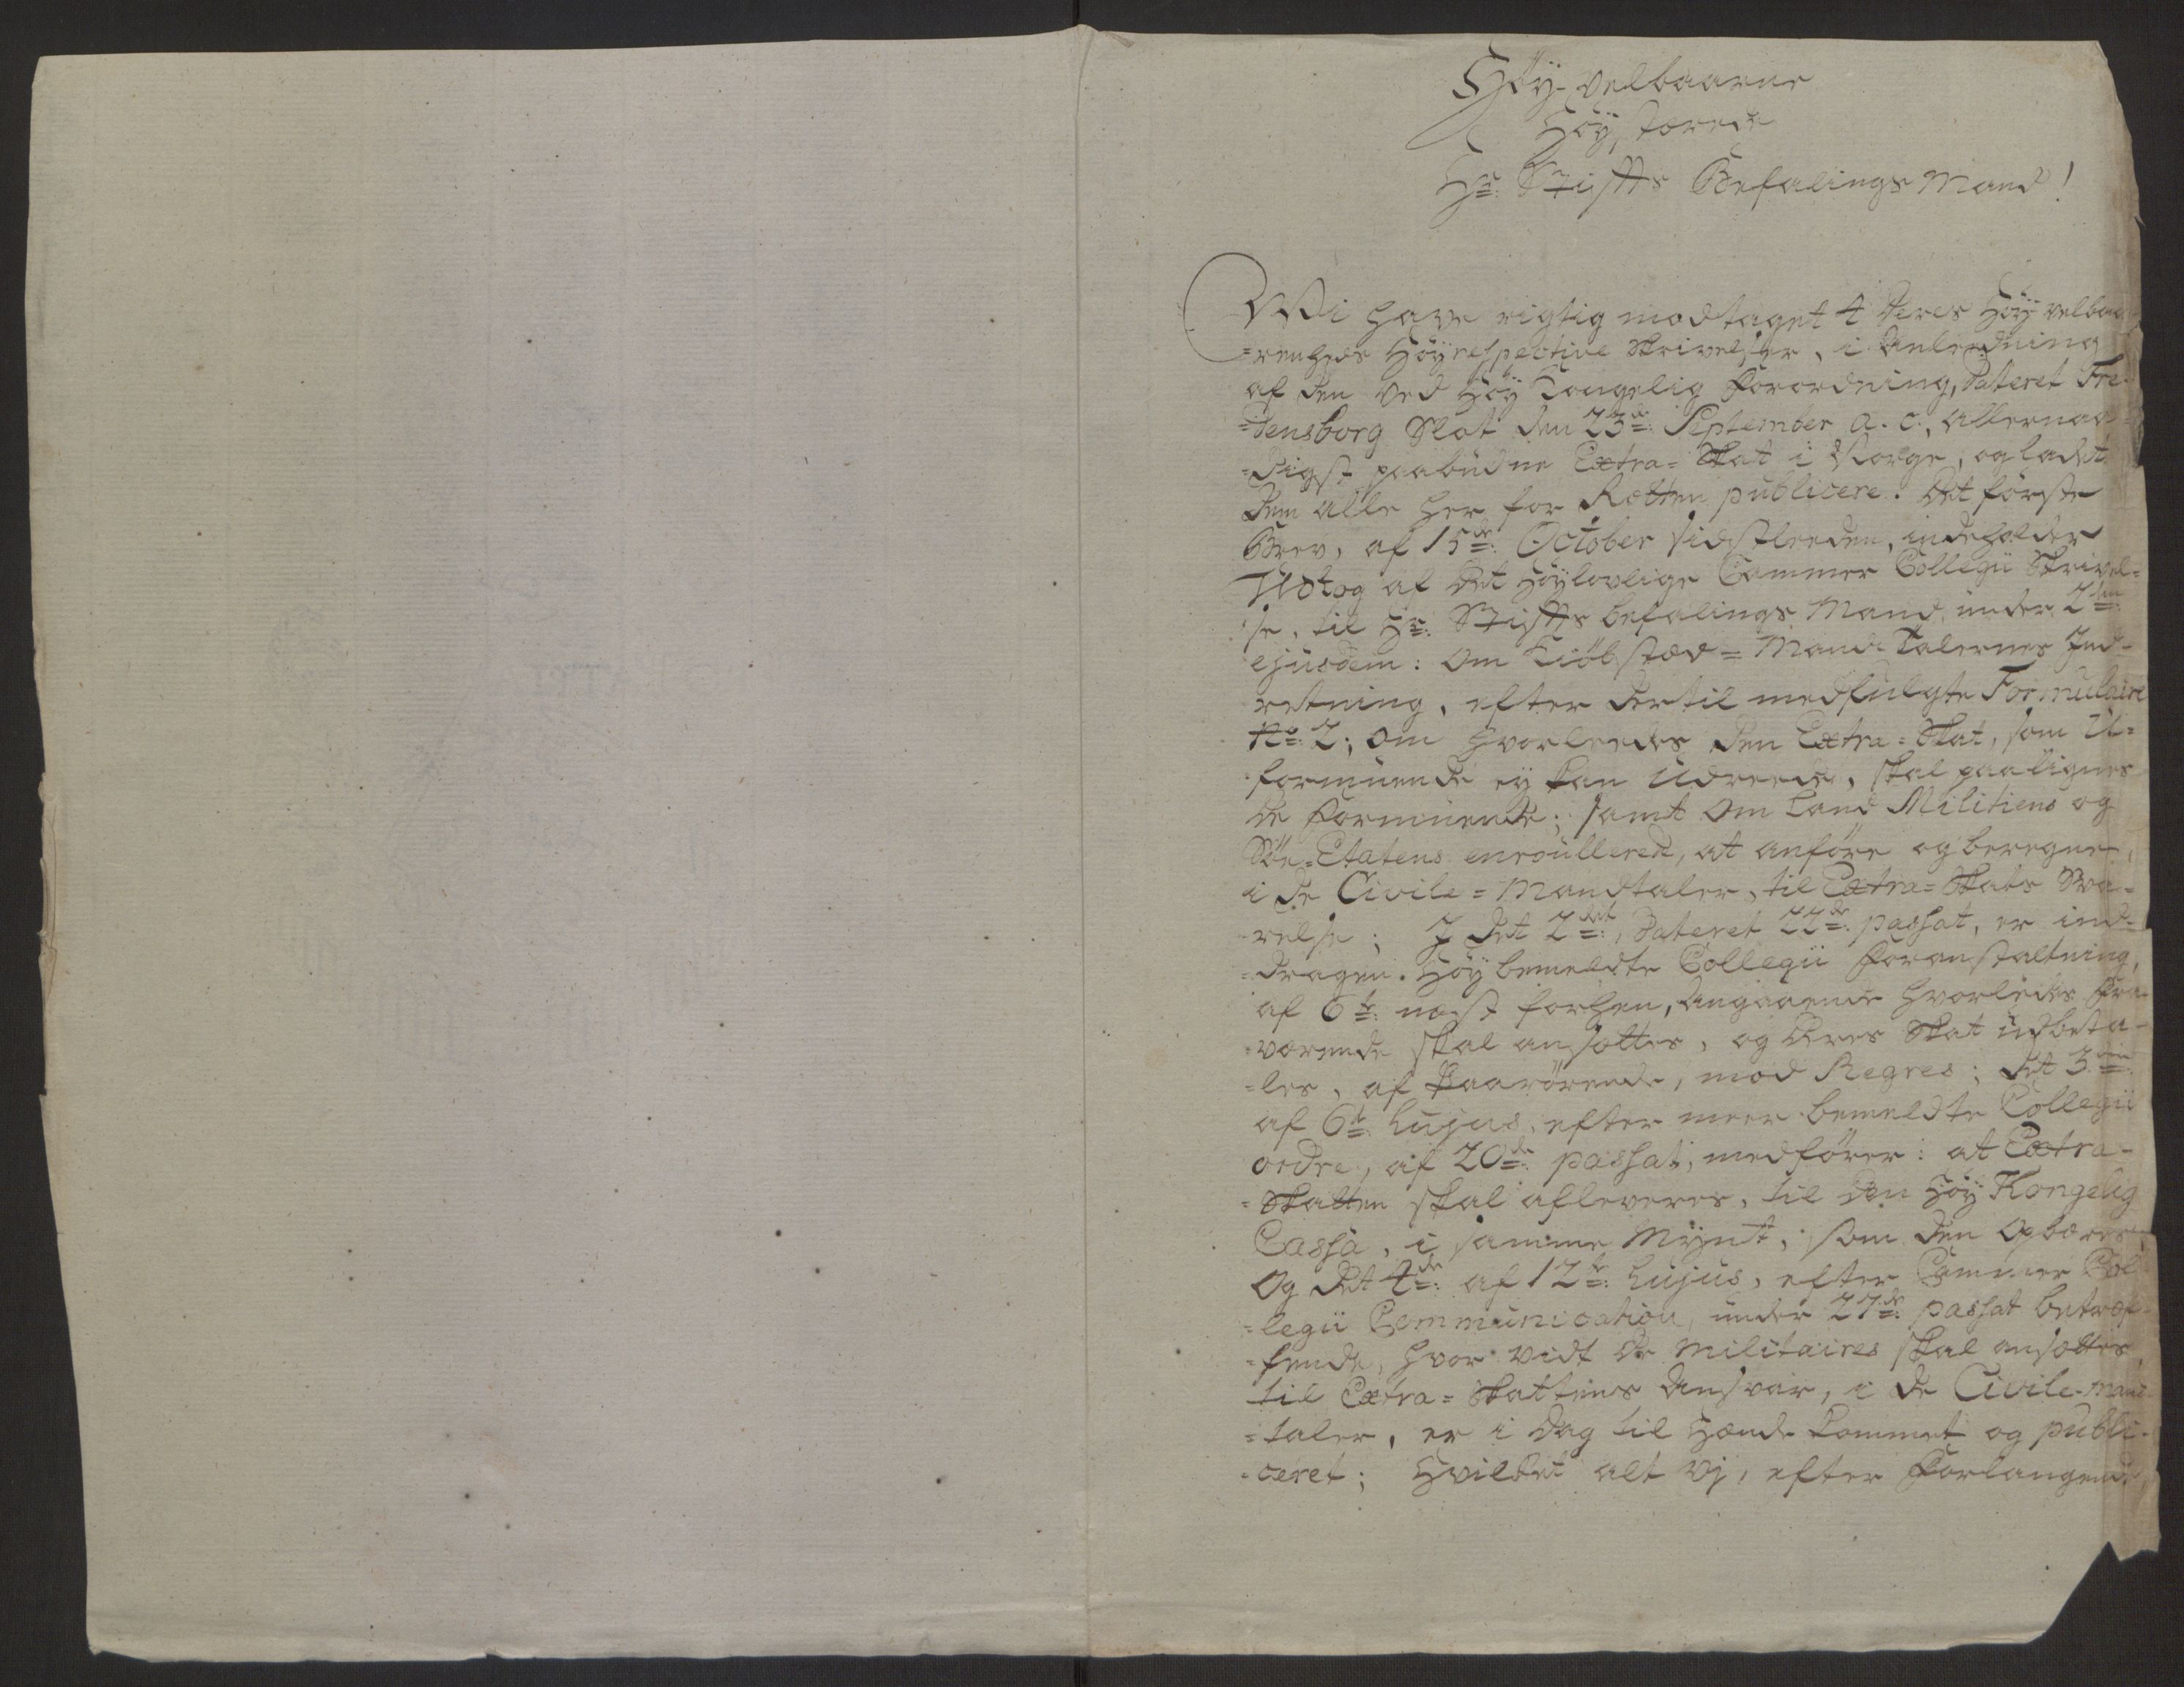 Høÿ-velbaarne
Høÿstærede
Hr: Stiffts Befalings Mand!
Wi have rigtig modtaget 4 Deres Høÿ velbaa-
=renheds Høÿrespective Skrivelser, i Anleedning
af den ved Høÿ Kongelig Forordning, Dateret Fre-
=densborg Slot den 23de September a. c., allernaa-
=digst paabudne Extra=Skat i Norge, og ladet
dem alle her for Rætten publicere. Det første
Brev, af 15de October sidstleeden, indeholder
Udtog af Det Høÿlovlige Cammer Collegii Skrivel=
se, til Hr: Stiffts befalings Mand, under 2den
ejusdem: Om Kiøbstæd=Mand Talernes Ind-
retning, efter dertil medfulgte Formulaire
No: 2; Om hvorleedes den Extra=Skat, som U=
formuende eÿ kan udreede, skal paalignes
de Formuende; samt Om Land Militiens og
Søe=Etatens enroullerede, at anføre og beregne,
i de Civile=Mandtaler, til Extra=Skats Sva-
relse; I det 2det, Dateret 22de passat, er ind=
=dragen Høÿbemeldte Collegii Foranstaltning,
af 6te næst forhen, Angaaende hvorledes Fra-
=værende skal ansættes, og Deres Skat udbeta-
=les, af Paarørende, mod Regres; det 3die
af 6te hujus, efter meer bemeldte Collegii
ordre, af 20de passat, medfører: at Extra-
=Skatten skal afleveres, til Den Høÿ Kongelig
Cassa, i samme Mÿnt, som den Opbæres,
Og det 4de af 12te hujus, efter Cammer Col-
=legii Communication, under 27de passat betræf-
=fende, hvor vidt De Militaires skal ansættes
til Extra=Skattens Ansvar, i de Civile-mand-
=taler, er i Dag til Hænde kommet og publi-
=ceret; Hvilket alt Vj, efter Forlangende,